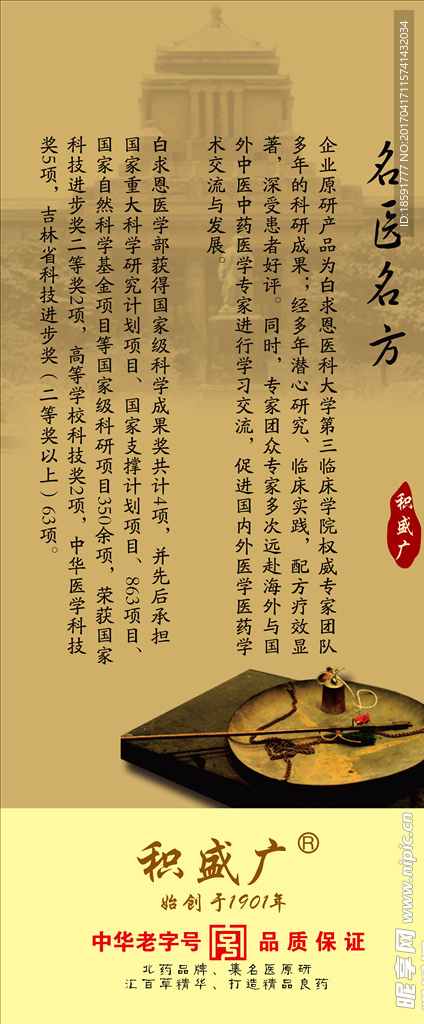 名医名方
积盛广
企业原研产品为白求恩医科大学第三临床学院权威专家团队
多年的科研成果；经多年潜心研究、临床实践，配方疗效显
著，深受患者好评。同时，专家团众专家多次远赴海外与国
外中医中药医学专家进行学习交流，促进国内外医学医药学
术交流与发展。
白求恩医学部获得国家级科学成果奖共计4项，并先后承担
国家重大科学研究计划项目、国家支撑计划项目、863项目、
国家自然科学基金项目等国家级科研项目350余项，荣获国家
科技进步奖二等奖2项，高等学校科技奖2项，中华医学科技
奖5项，吉林省科技进步奖（二等奖以上）63项。
积盛广®
始创于1901年
中华老字号 品质保证
北药品牌、集名医原研
汇百草精华、打造精品良药
ID:18591777 NO:20170417115741432034
昵享网 www.nipic.cn